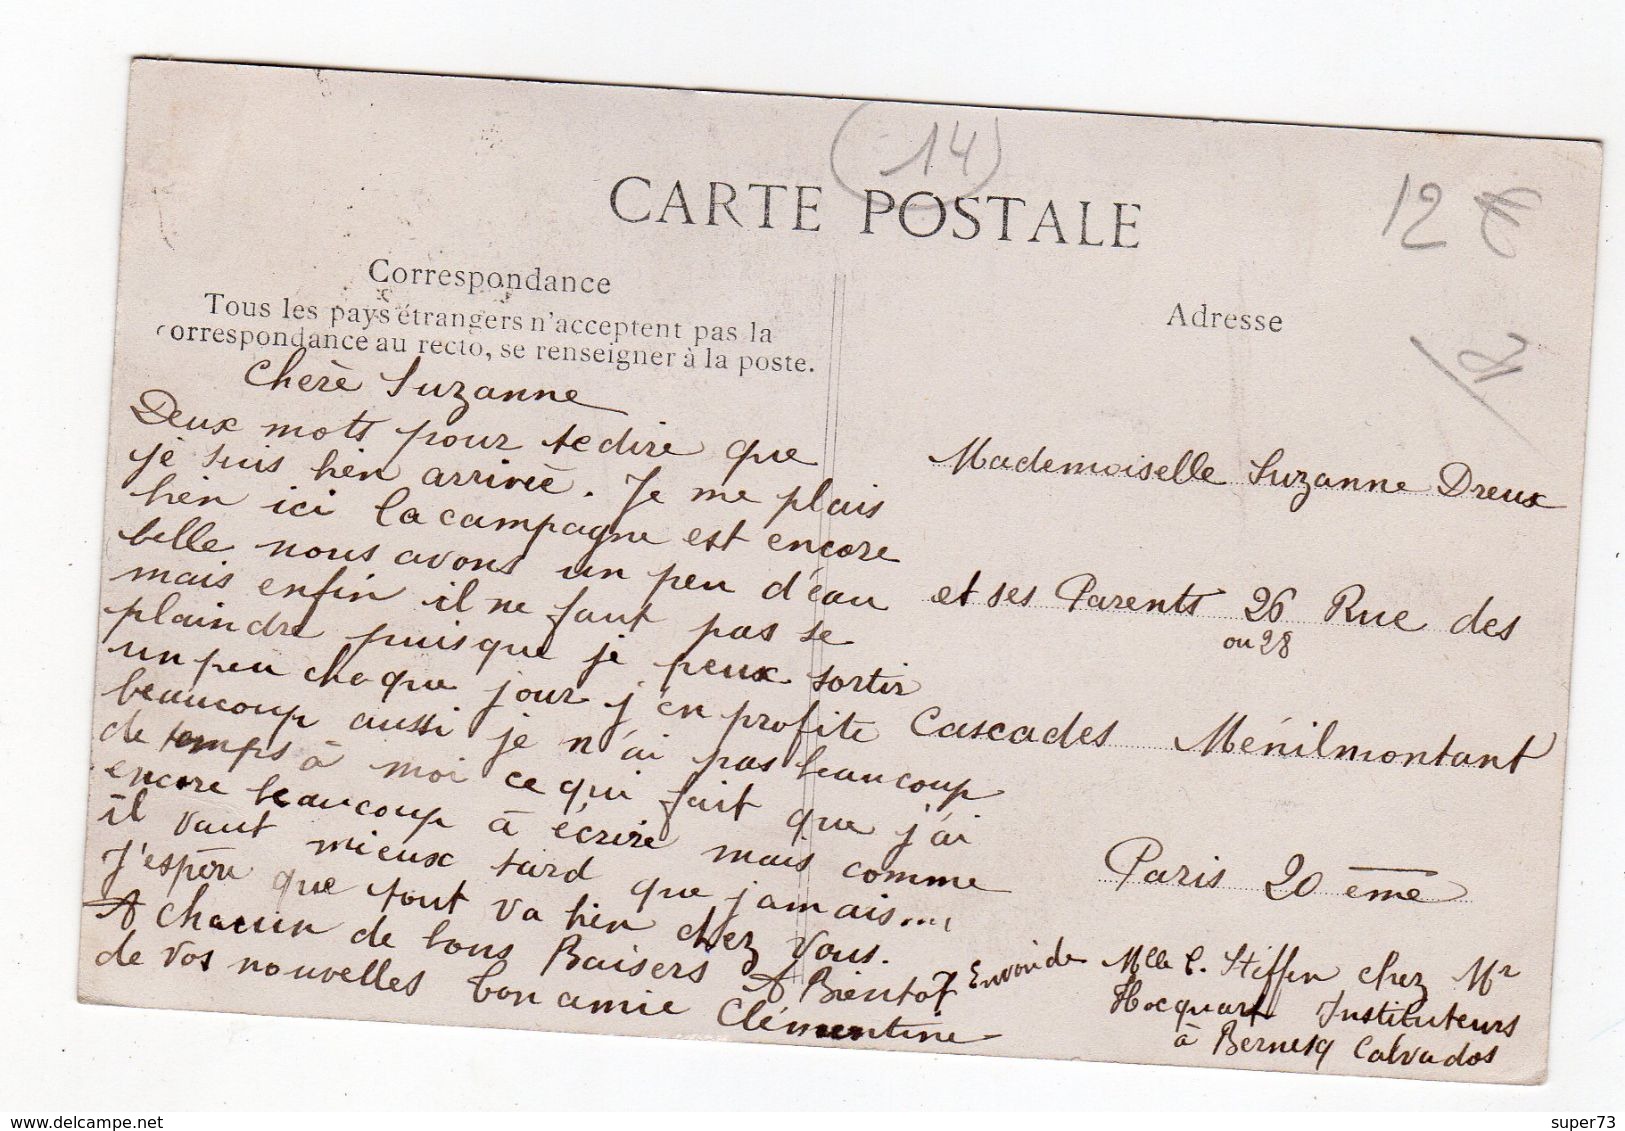 (14)
CARTE POSTALE
12 €
Correspondance
Tous les pays étrangers n'acceptent pas la
correspondance au recto, se renseigner à la poste.
Adresse
Chère Suzanne
Deux mots pour te dire que
je suis bien arrivée. Je me plais
bien ici la campagne est encore
belle nous avons un peu d'eau
mais enfin il ne faut pas se
plaindre puisque je peux sortir
un peu chaque jour j'en profite
beaucoup aussi je n'ai pas beaucoup
de temps à moi ce qui fait que j'ai
encore beaucoup à écrire mais comme
il vaut mieux tard que jamais....
J'espère que tout va bien chez vous.
A chacun de bons Baisers A Bientôt
de vos nouvelles ton amie Clémentine
Mademoiselle Suzanne Dreux
et ses Parents 26 Rue des
ou 28
Cascades Ménilmontant
Paris 20 ème
Envoi de Mlle C. Stiffen chez Mr
Hocquart Instituteurs
à Bernesq Calvados
super73